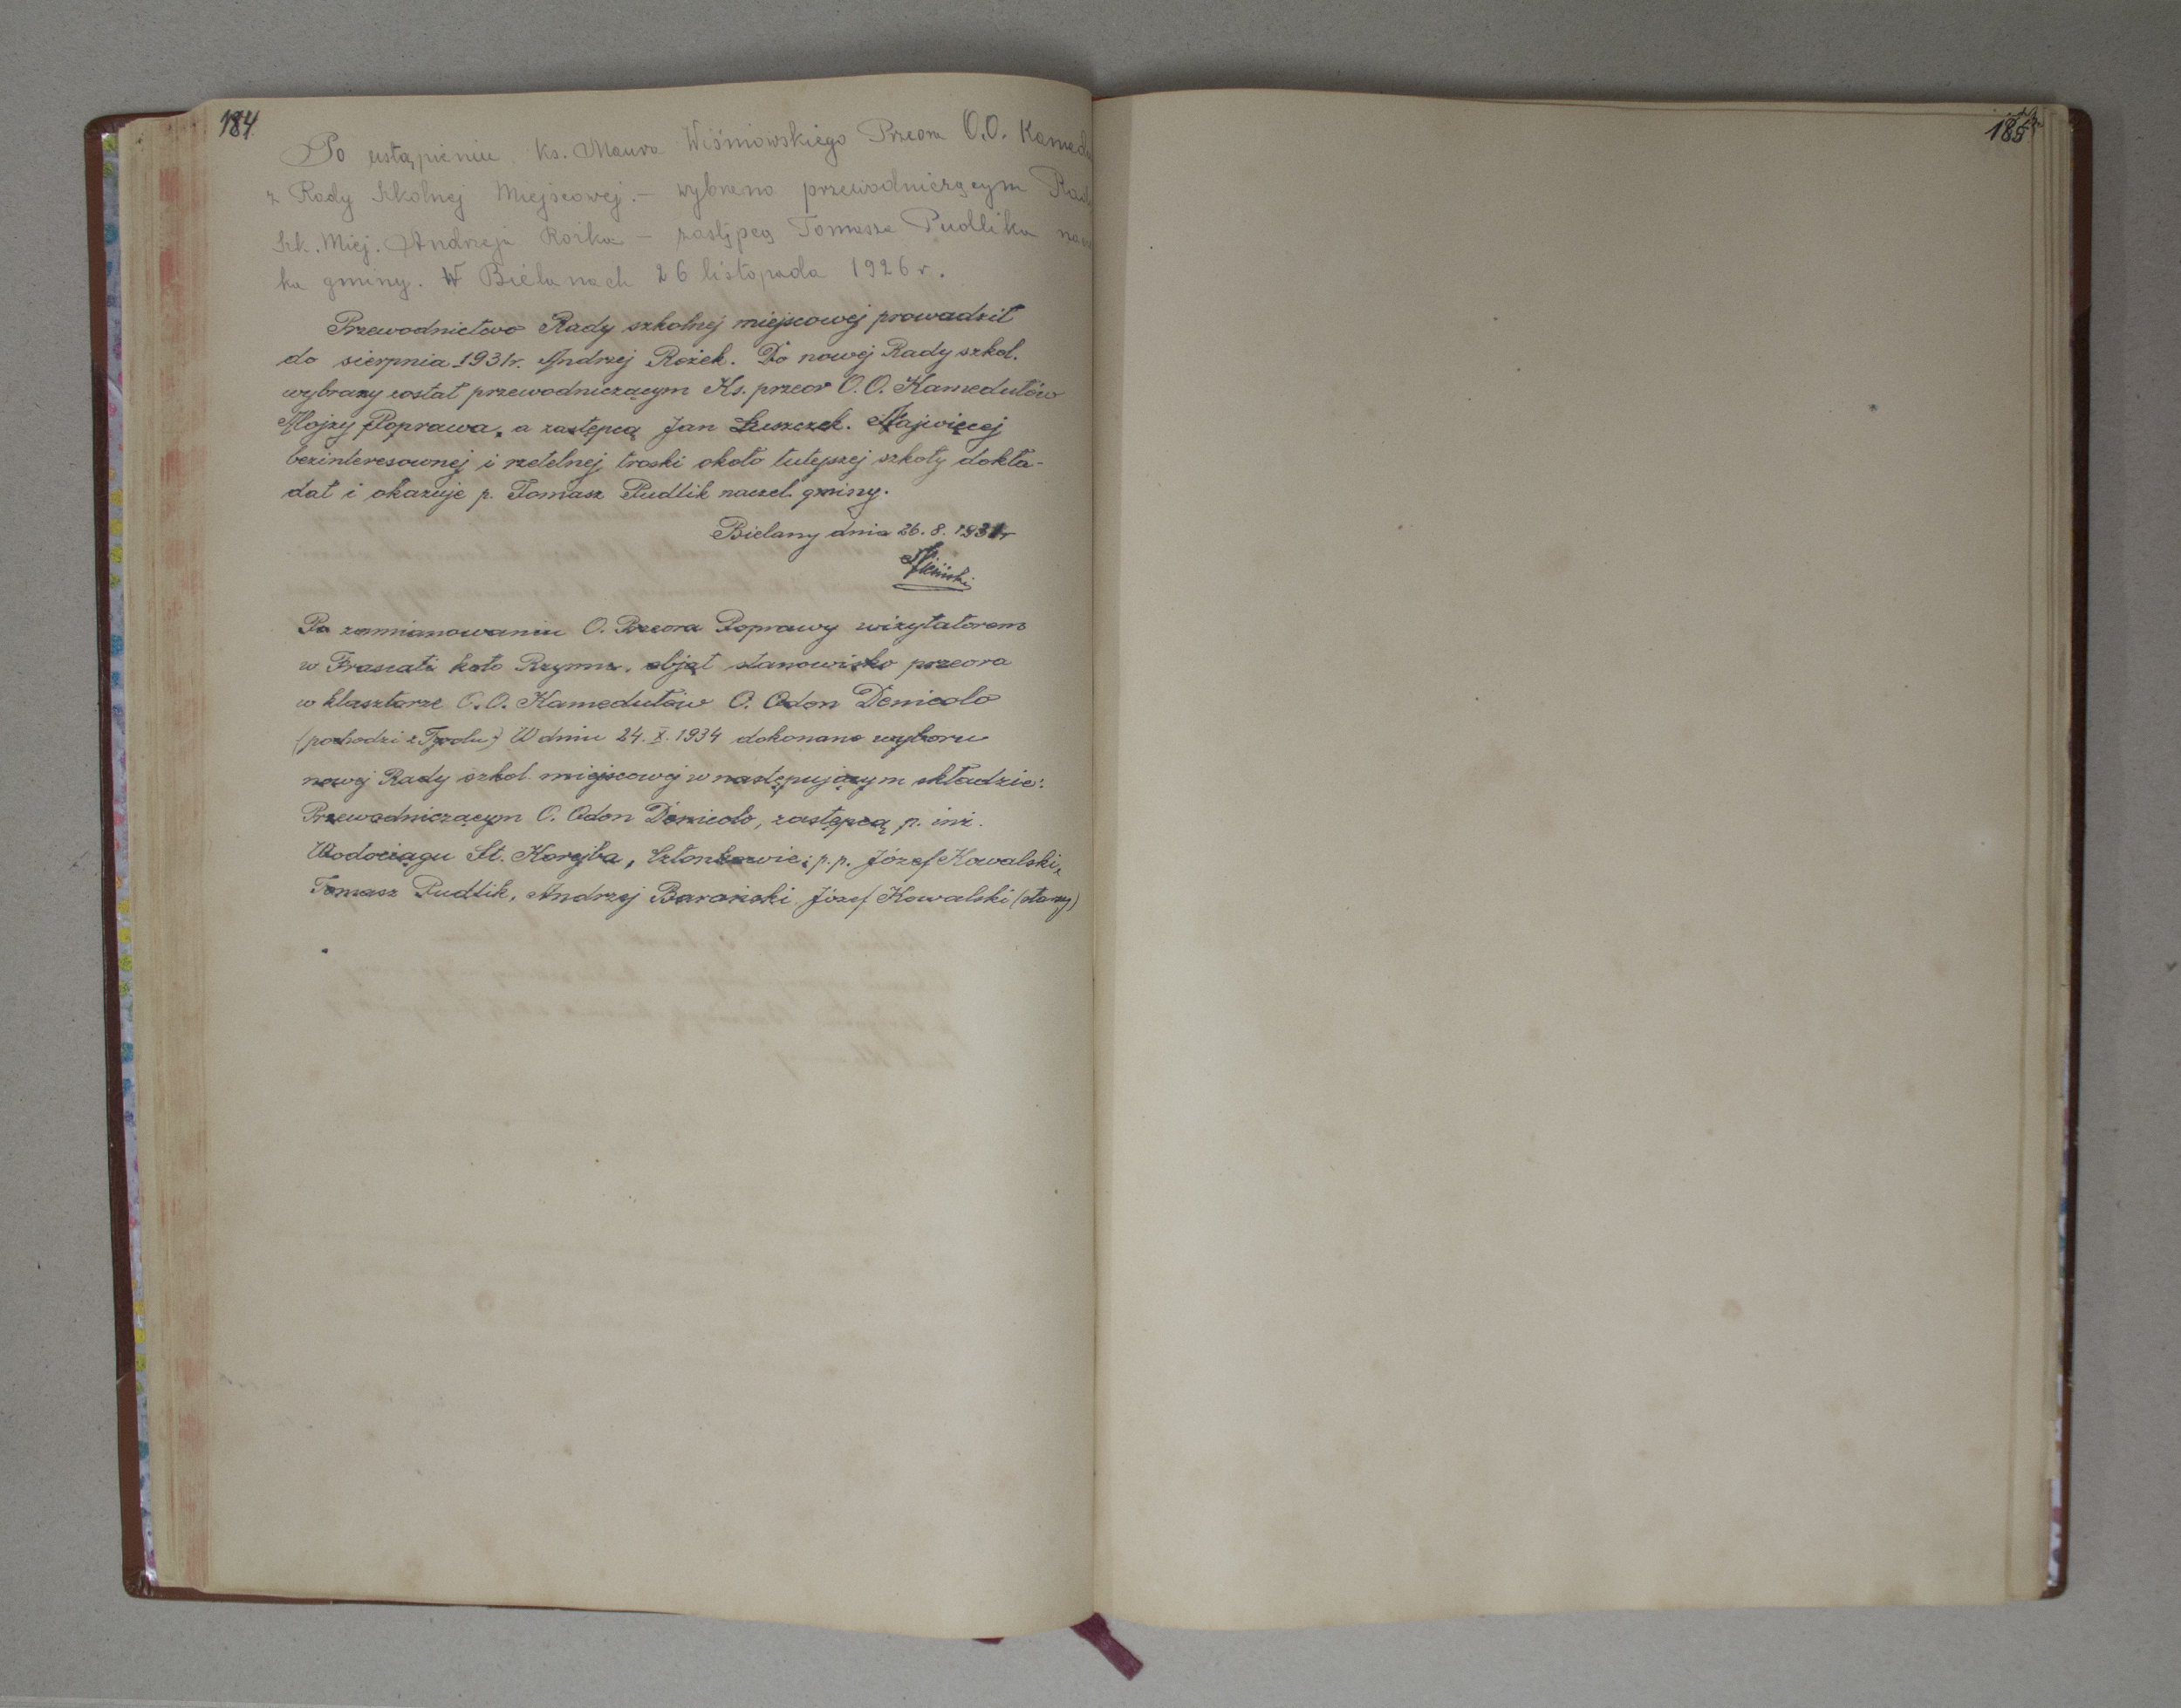 184
Po ustąpieniu ks. Maura Wiśniowskiego Przeora O.O. Kamedu
z Rady Szkolnej Miejscowej. – wybrano przewodniczącym Rad
Szk. Miej. Andrzeja Rożka – zastępcą Tomasza Pudlika nacz
ka gminy. W Bielanach 26 listopada 1926 r.
Przewodnictwo Rady szkolnej miejscowej prowadził
do sierpnia 1931r. Andrzej Rożek. Do nowej Rady szkol.
wybrany został przewodniczącym Ks. przeor O.O. Kamedułów
Alojzy Poprawa, a zastępcą Jan Łuszczek. Najwięcej
bezinteresownej i rzetelnej troski około tutejszej szkoły dokła-
dał i okazuje p. Tomasz Pudlik naczel. gminy.
Bielany dnia 26. 8. 1931r
Po zamianowaniu O. Przeora Poprawy wizytatorem
w Frascati koło Rzymu, objął stanowisko przeora
w klasztorze O.O. Kamedułów O. Odon Denicolo
(pochodzi z Tyrolu) W dniu 24. X. 1934 dokonano wyboru
nowej Rady szkol. miejscowej w następującym składzie:
Przewodniczącym O. Odon Denicolo, zastępcą p. inż.
Wodociągu St. Korejba, Członkowie: p.p. Józef Kowalski,
Tomasz Pudlik, Andrzej Barański Józef Kowalski (stary)
185